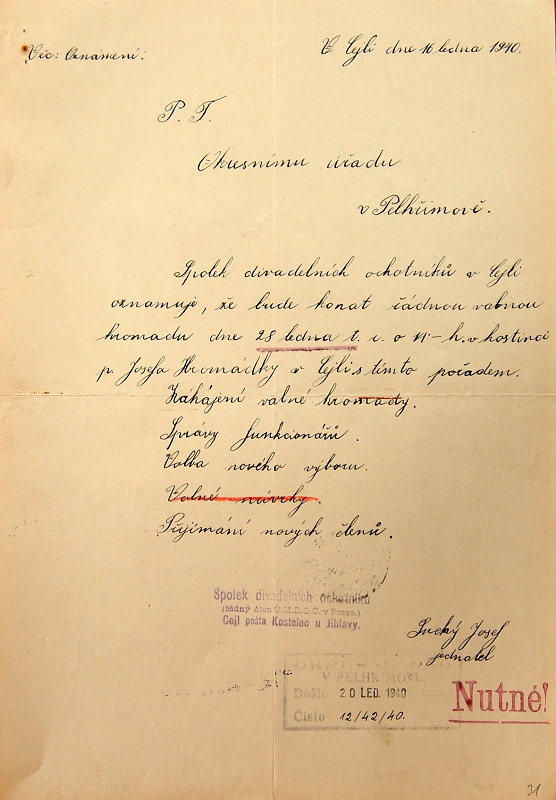 Věc: Oznámení:
V Cejli dne 16 ledna 1940.
P. T.
Okresnímu úřadu
v Pelhřimově.
Spolek divadelních ochotníků v Cejli
oznamuje, že bude konat řádnou valnou
hromadu dne 28 ledna t. r. o h. v hostinci
p. Josefa Hromádky v Cejli s tímto pořadem.
Zahájení valné hromady.
Správy funkcionářů.
Volba nového výboru.
Volné návrhy.
Přijímání nových členů.
Spolek divadelních ochotníků
(řádný člen Ú.M.D.O.Č. v Praze.)
Cejl pošta Kostelec u Jihlavy.
Suchý Josef
jednatel
OKRESNÍ ÚŘAD
V PELHŘIMOVĚ.
Došlo 20 LED. 1940
Číslo 12/42/40.
Nutné!
21